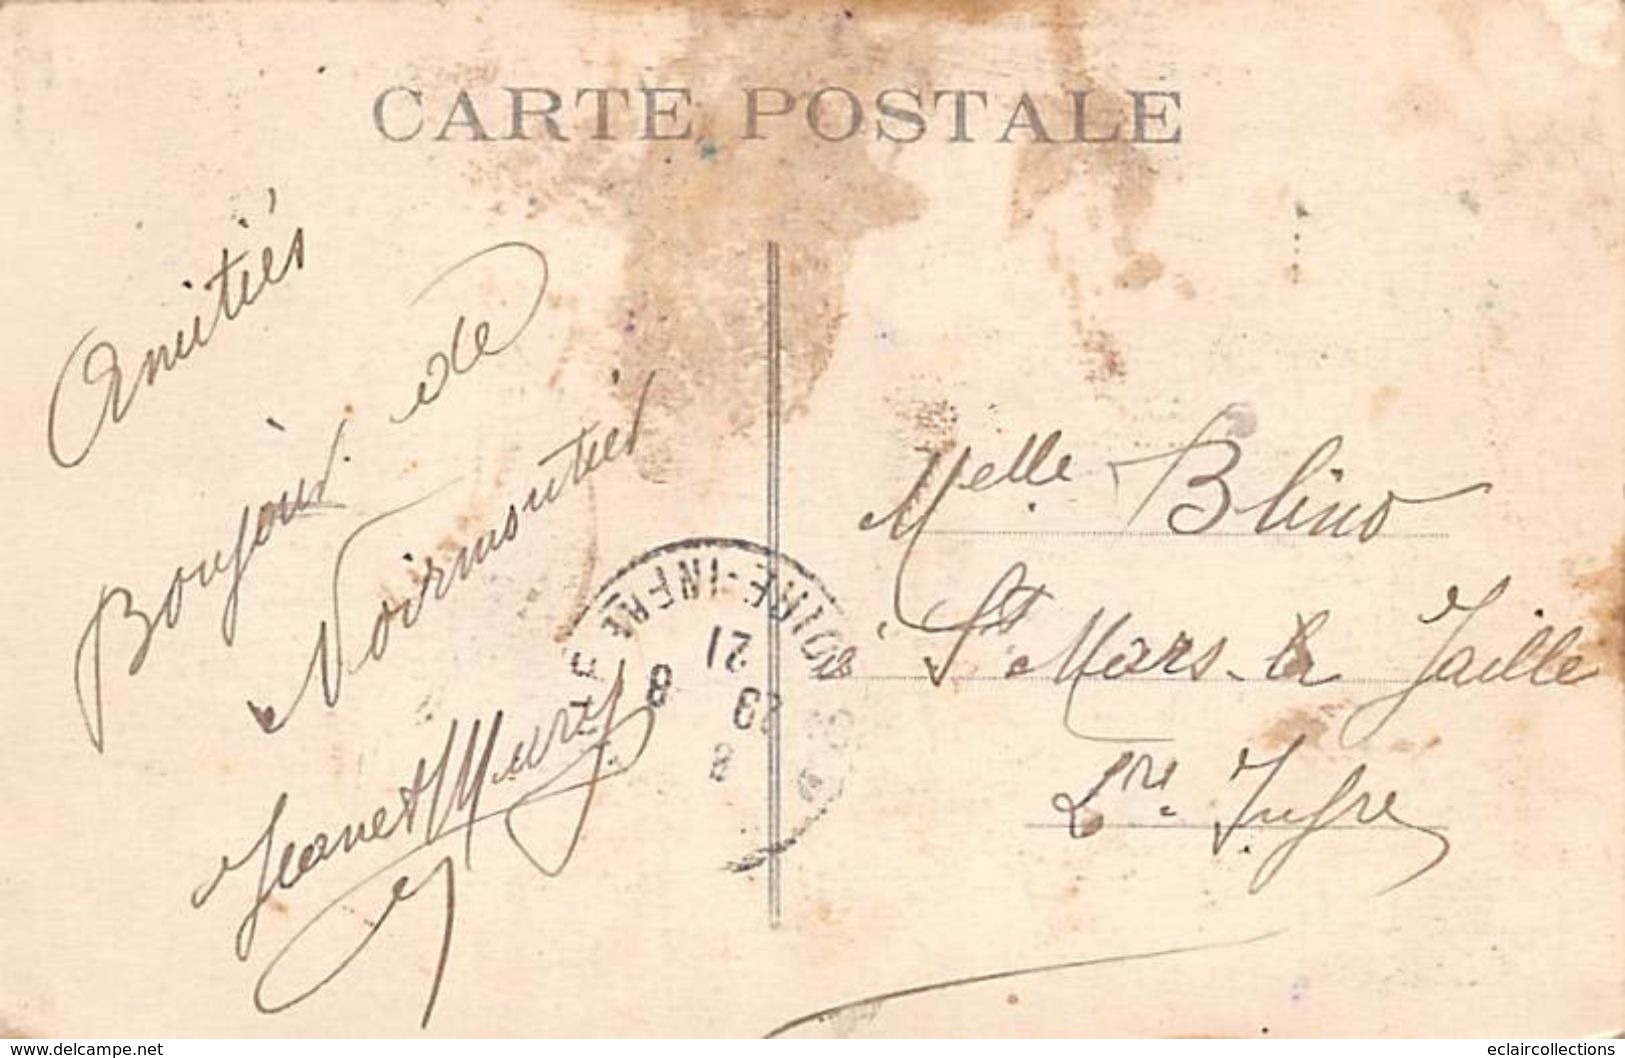 CARTE POSTALE
Amitiés
Bonjour de
Noirmoutier
Melle Blino
St Mars-la Jaille
Lre Infre
LOIRE-INFRE
21
8
19
8
www.delcampe.net
eclaircollections